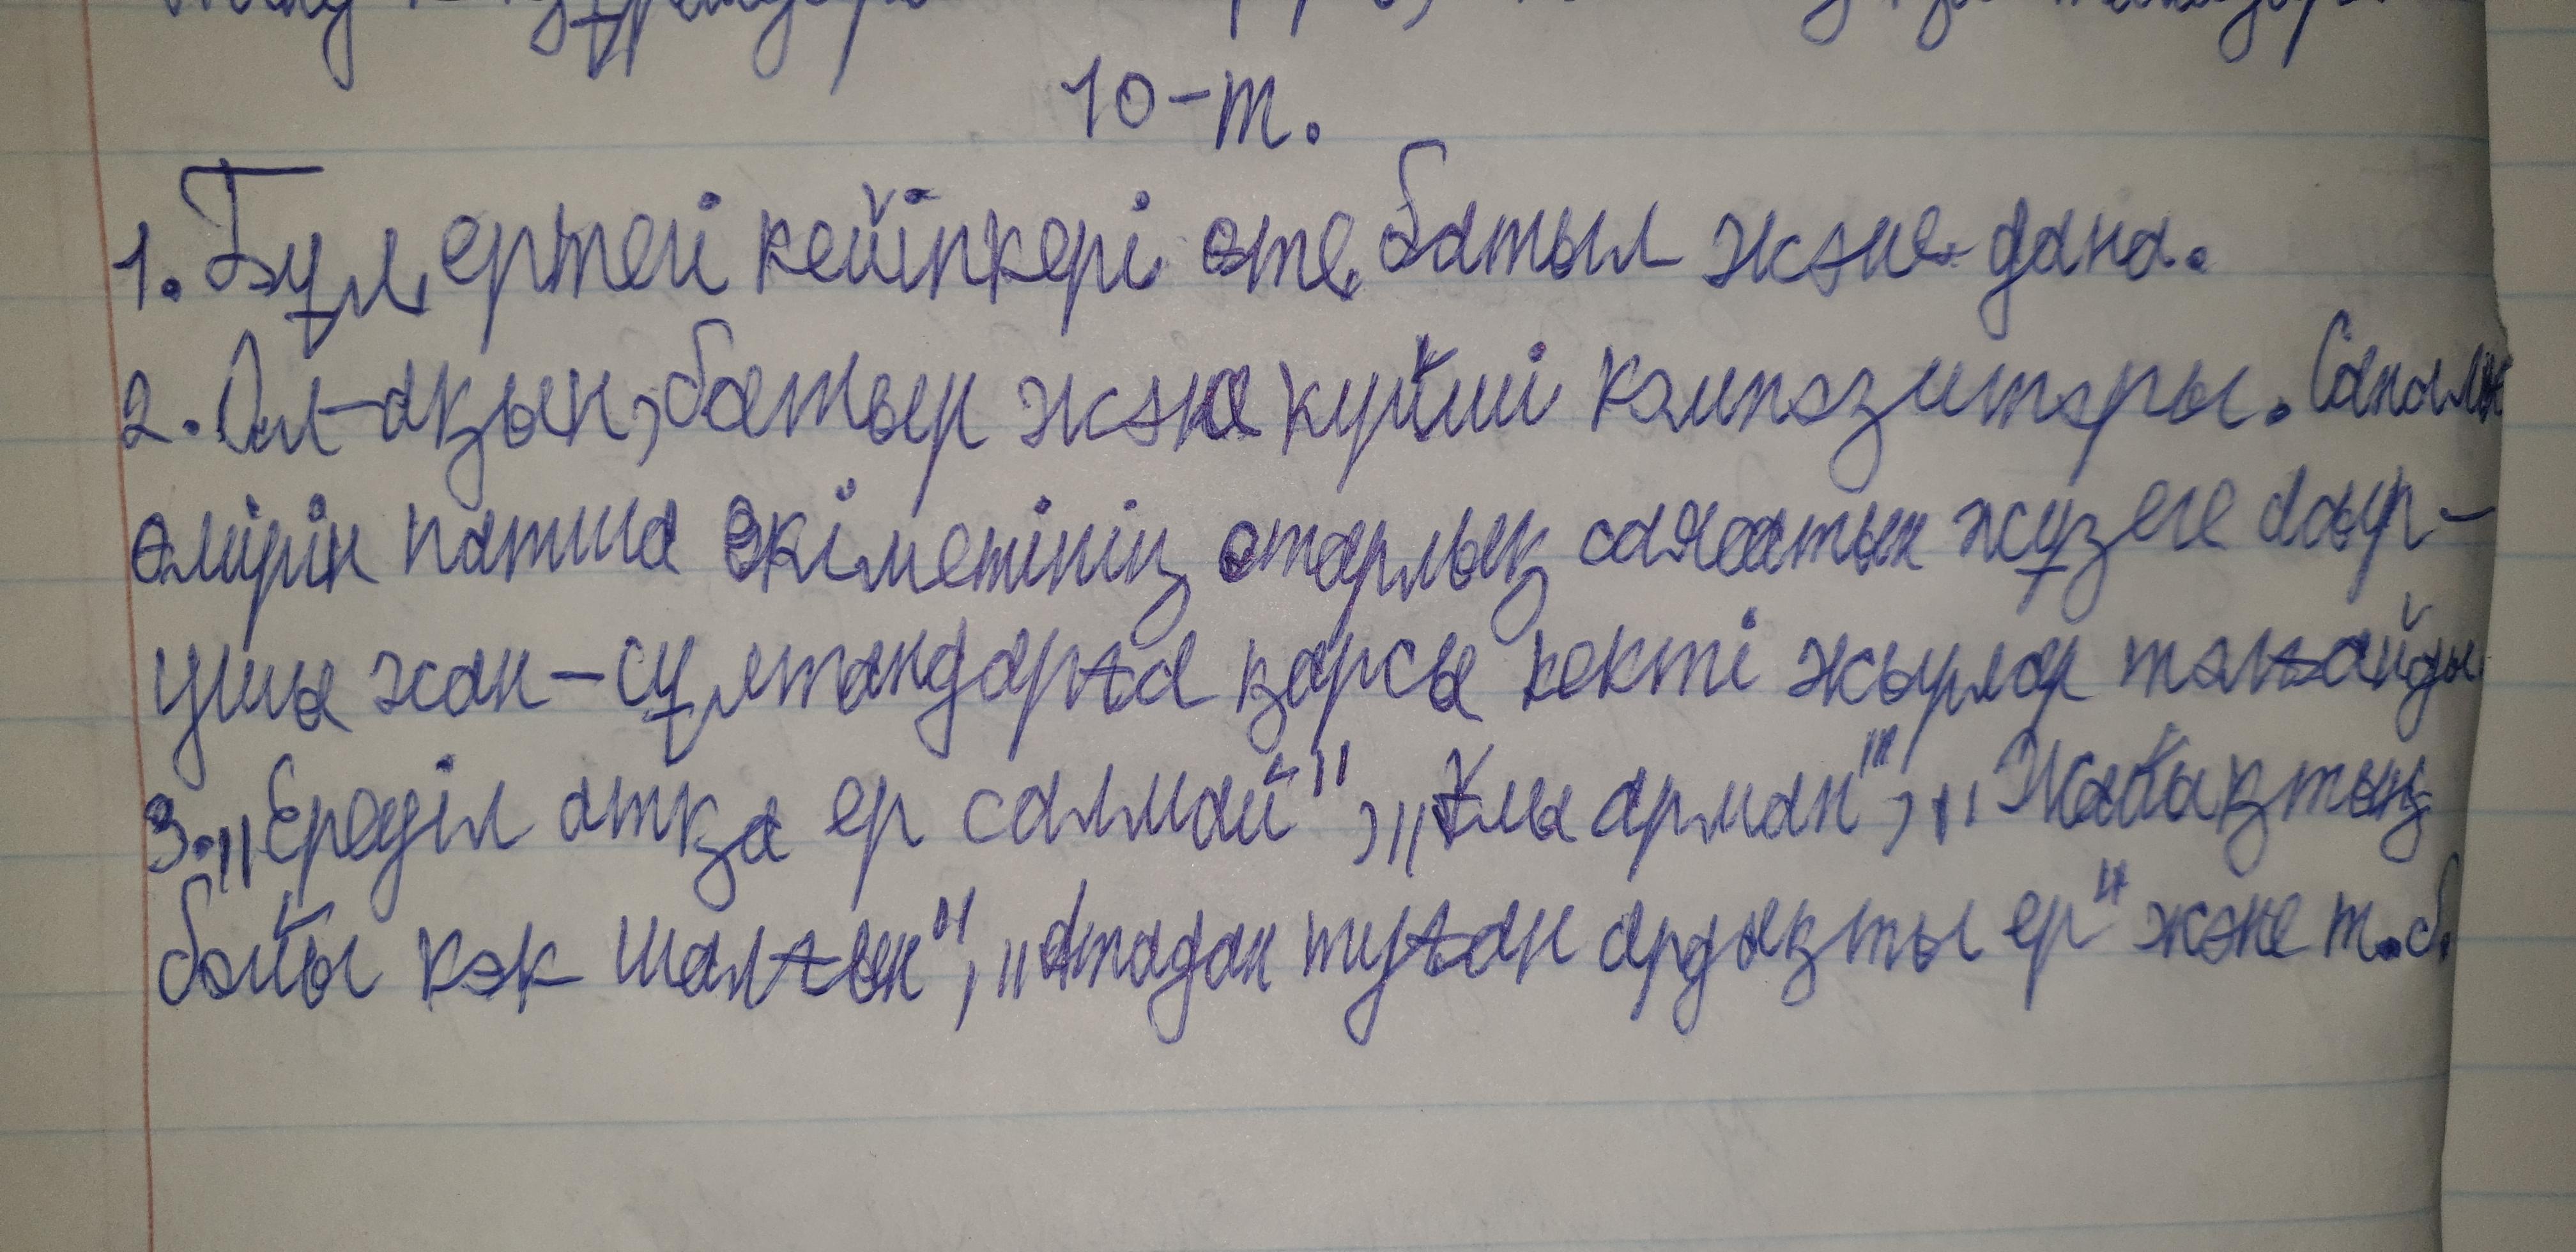 10-т.
1. Бұл ертегі кейіпкері өте батыл және дана.
2. Ол-ақын, батыр және күйші композиторы. Саналы
өмірін патша өкіметінің отарлық саясатын жүзеге асыр-
ушы хан-сұлтандарға қарсы кекті жырлар толғайды.
3. „Ереуіл атқа ер салмай", „Ұлы арман", „Жайықтың
бойы көк шалғын", „Атадан туған ардақты ер" және т.б.